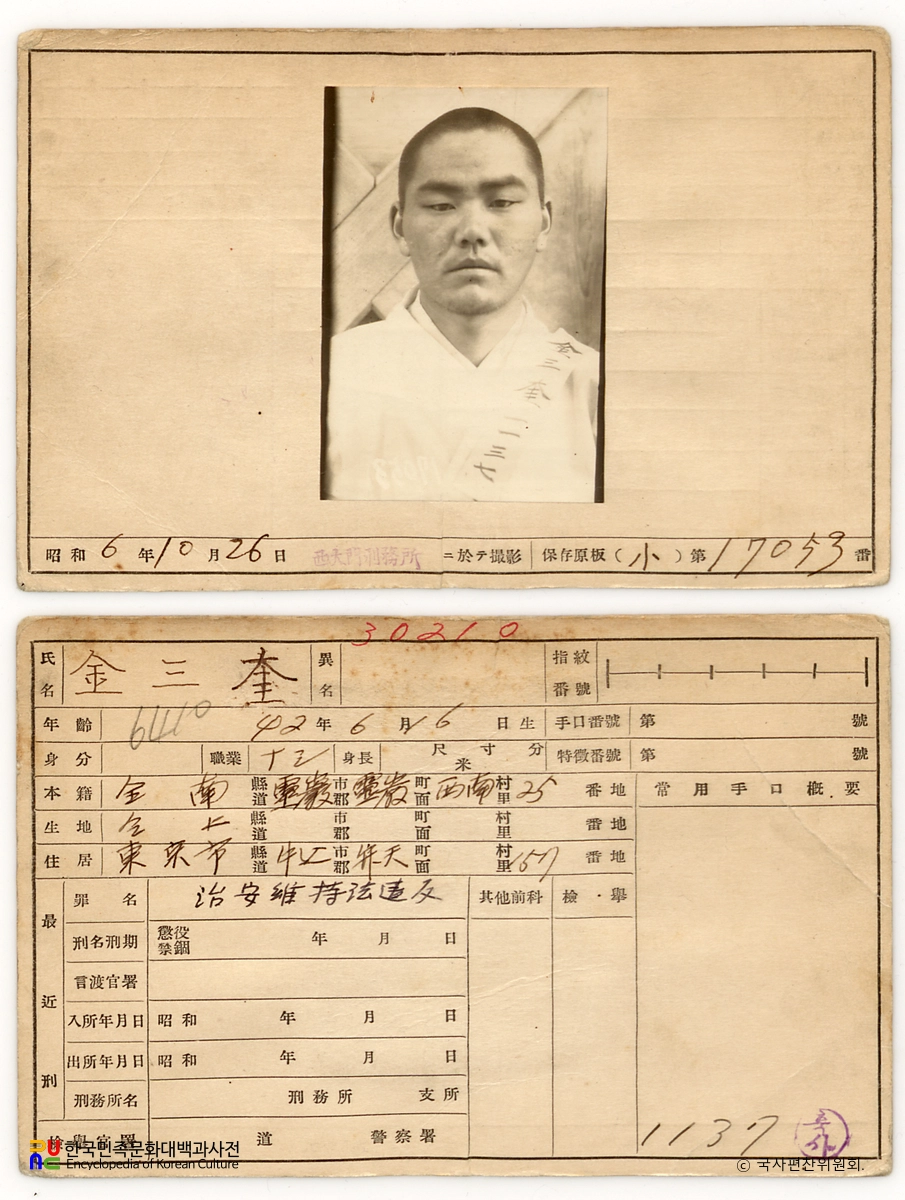 金三奎 一一三七
昭和 6 年 10 月 26 日 西大門刑務所 ニ於テ撮影 保存原板(小)第 17053 番
30210
氏名 金三奎 異名 指紋番號
年齡 42 年 6 月 16 日生 手口番號 第 號
身分 職業 身長 尺寸分 米 特徵番號 第 號
本籍 全南 縣道 靈巖 市郡 靈巖 町面 西南 村里 25 番地 常用手口槪要
生地 仝上 縣道 市郡 町面 村里 番地
住居 東京市 縣道 牛込 市郡 弁天 町面 村里 157 番地
最近刑
罪名 治安維持法違反 其他前科 檢・擧
刑名刑期 懲役 禁錮 年 月 日
言渡官署
入所年月日 昭和 年 月 日
出所年月日 昭和 年 月 日
刑務所名 刑務所 支所
檢擧官署 道 警察署
1137
한국민족문화대백과사전
Encyclopedia of Korean Culture
© 국사편찬위원회.